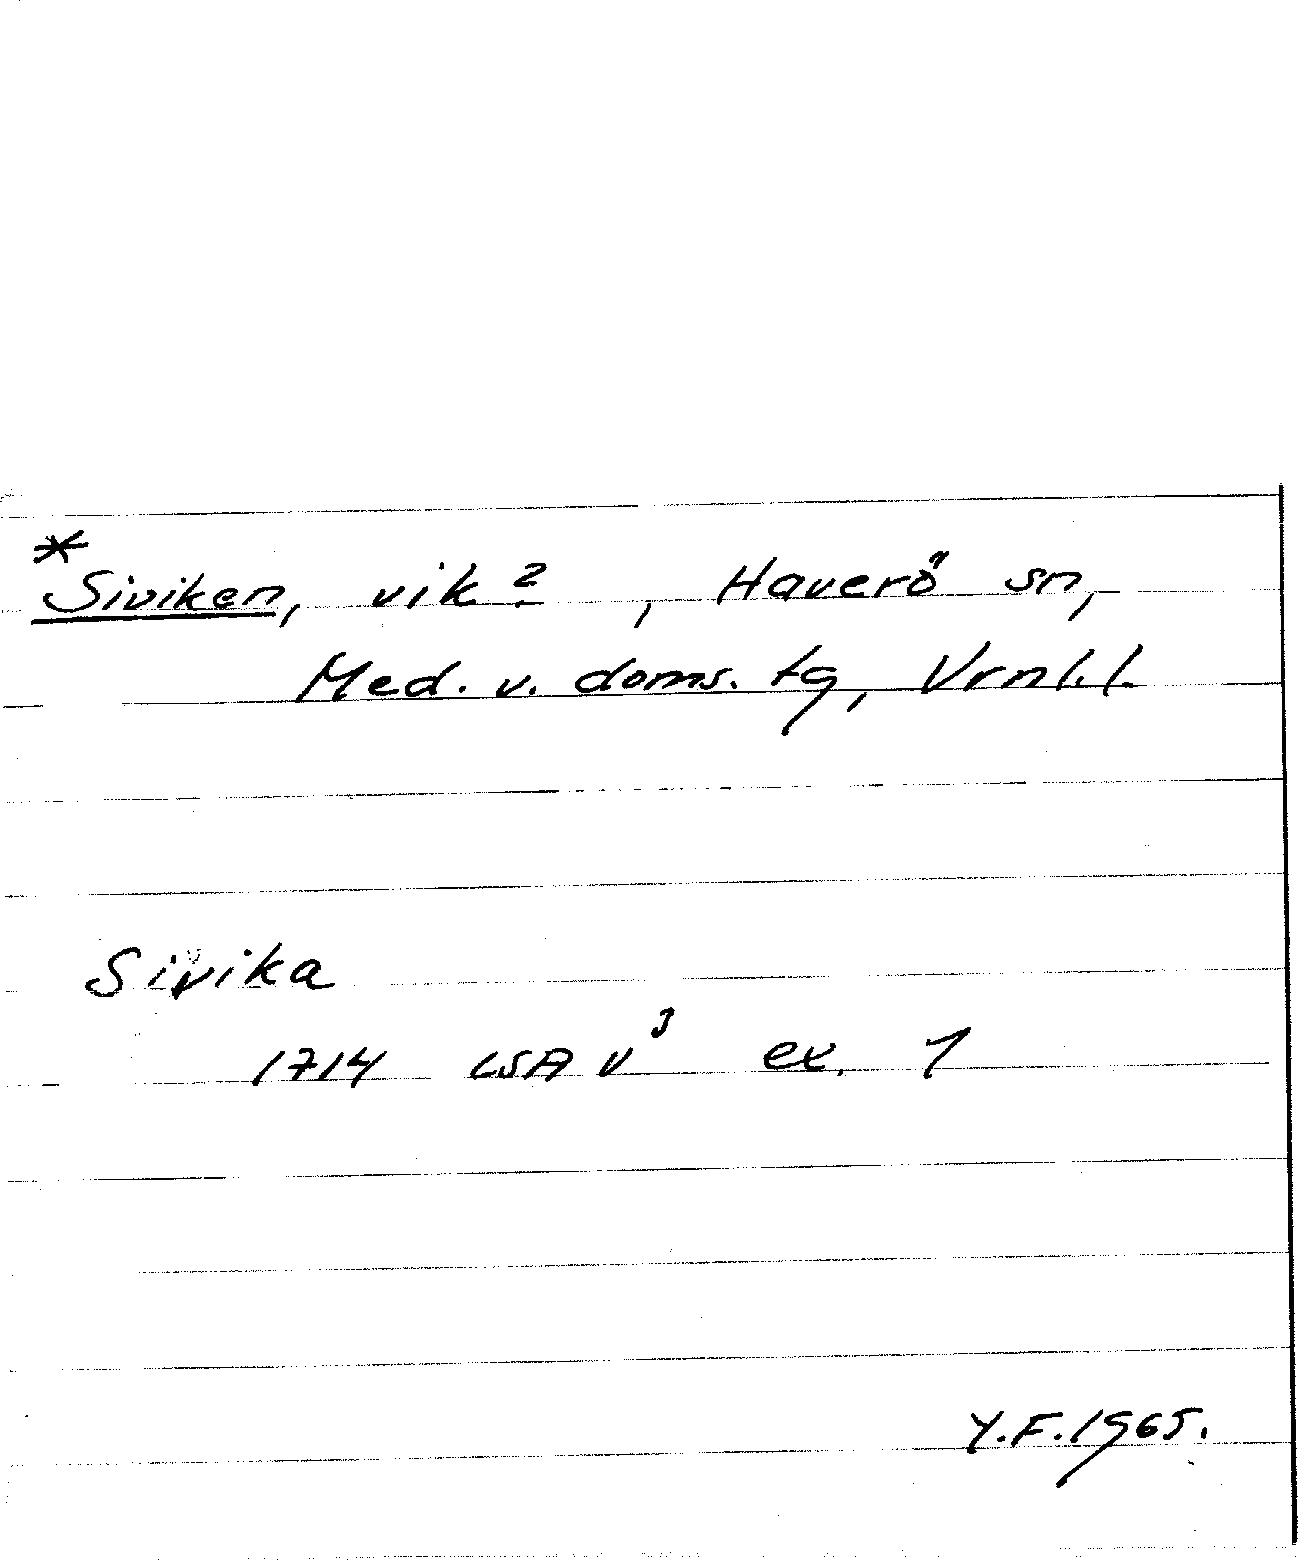 *Siviken, vik?, Haverö sn,
Med. v. doms. tg, Vrnl. l.
Sivika
1714 LSA V³ ex. 1
Y.F.1965.